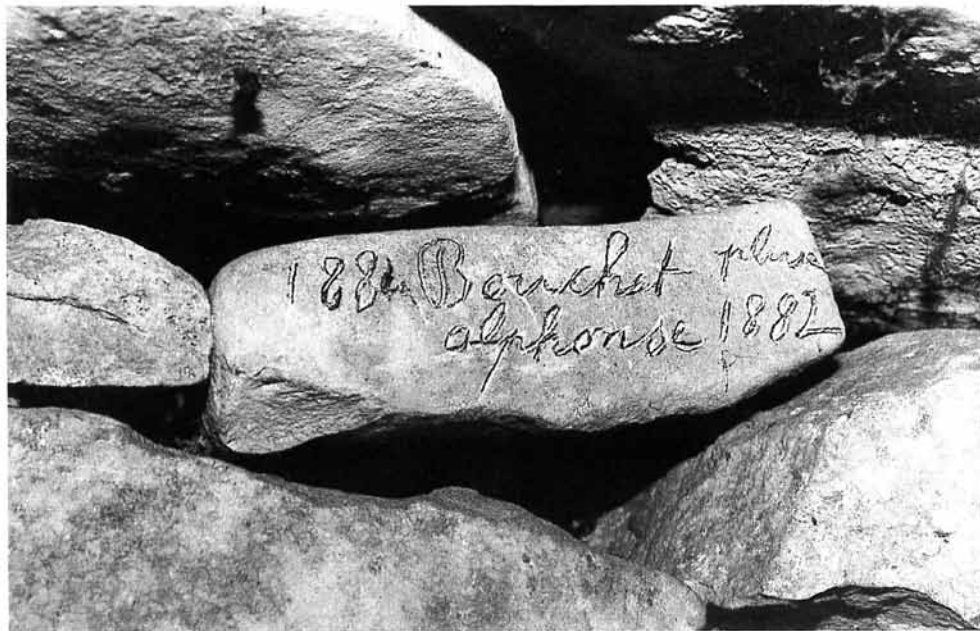 1884 Bouchet
alphonse 1882